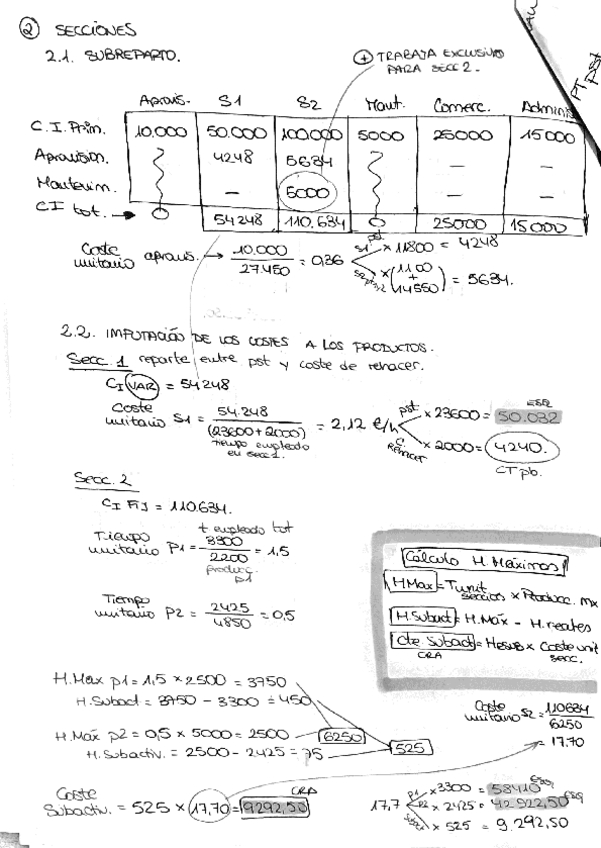 ② SECCIONES
2.1. SUBREPARTO.
+ TRABAJA EXCLUSIVO
PARA SECC 2.
PT pst
Aprovis. S1 S2 Mant. Comerc. Adminis
C.I. Prim. 10.000 50.000 100.000 5000 25000 15000
Aprovision. 4248 5634 – –
Mantenim. – 5000 – –
CI tot. → 0 54248 110.634 0 25000 15000
Coste unitario aprovis. → 10.000 / 27.450 = 0,36
S1 pst × 11800 = 4248
S2 × (1100 + 14550) = 5634.
2.2. IMPUTACIÓN DE LOS COSTES A LOS PRODUCTOS.
Secc. 1 reparte entre pst y coste de rehacer.
CI VAR = 54248
Coste unitario S1 = 54.248 / (23600+2000) = 2,12 €/h
tiempo empleado
en secc 1.
pst × 23600 = 50.032
C. REHACER × 2000 = 4240.
CT pb.
Secc. 2
CI FIJ = 110.634.
Tiempo unitario P1 = 3300 / 2200 = 1,5
t empleado tot
produc. p1
Tiempo unitario P2 = 2425 / 4850 = 0,5
Cálculo H. Máximas
HMax = T unit secció × Producc. mx
H. Subact = H. Máx – H. reales
Cte. Subact = H sub × Coste unit secc.
CRA
H. Max p1 = 1,5 × 2500 = 3750
H. Subact = 3750 – 3300 = 450
H. Máx p2 = 0,5 × 5000 = 2500
6250
H. Subactiv. = 2500 – 2425 = 75
525
Coste unitario S2 = 110634 / 6250
= 17.70
Coste Subactiv. = 525 × 17,70 = 9292,50
CRA
17,7
P1 × 3300 = 58410
P2 × 2425 = 42.922,50
Subac × 525 = 9.292,50